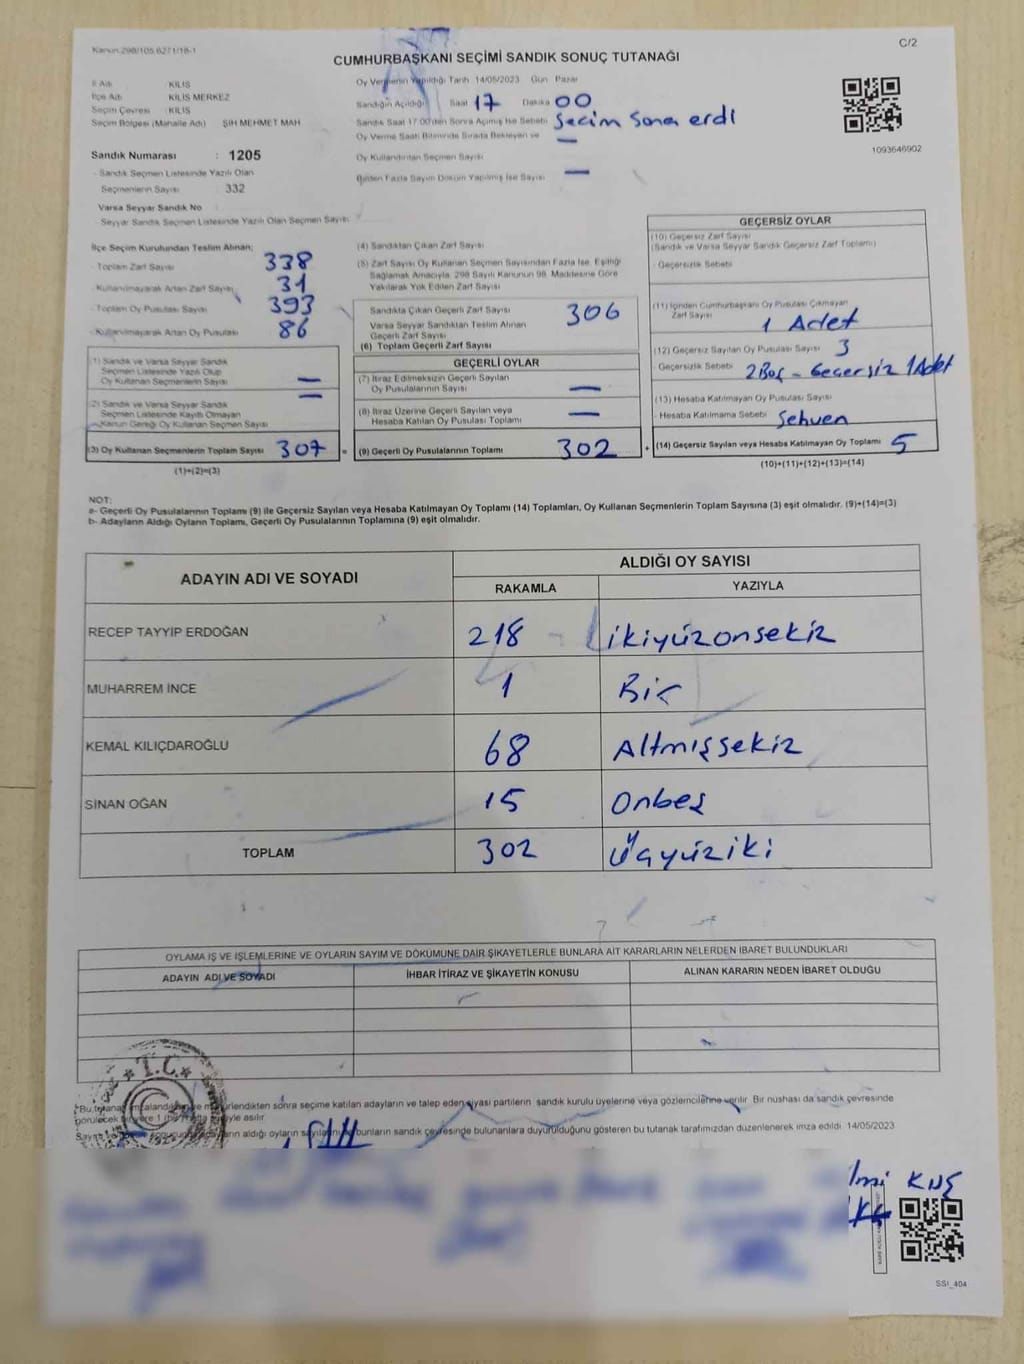 Kanun 298/105,6271/18-1
C/2
CUMHURBAŞKANI SEÇİMİ SANDIK SONUÇ TUTANAĞI
İl Adı KİLİS
İlçe Adı KİLİS MERKEZ
Seçim Çevresi : KİLİS
Seçim Bölgesi (Mahalle Adı) ŞIH MEHMET MAH
Sandık Numarası : 1205
Sandık Seçmen Listesinde Yazılı Olan
Seçmenlerin Sayısı : 332
Varsa Seyyar Sandık No
Seyyar Sandık Seçmen Listesinde Yazılı Olan Seçmen Sayısı
Oy Vermenin Yapıldığı Tarih 14/05/2023 Gün Pazar
Sandığın Açıldığı Saat 17 Dakika 00
Sandık Saat 17:00'den Sonra Açılmış İse Sebebi Secim Sona erdi
Oy Verme Saati Bitiminde Sırada Bekleyen ve —
Oy Kullandırılan Seçmen Sayısı
Birden Fazla Sayım Döküm Yapılmış İse Sayısı —
1093646902
İlçe Seçim Kurulundan Teslim Alınan;
- Toplam Zarf Sayısı 338
- Kullanılmayarak Artan Zarf Sayısı 31
- Toplam Oy Pusulası Sayısı 393
- Kullanılmayarak Artan Oy Pusulası 86
(1) Sandık ve Varsa Seyyar Sandık
Seçmen Listesinde Yazılı Olup
Oy Kullanan Seçmenlerin Sayısı —
(2) Sandık ve Varsa Seyyar Sandık
Seçmen Listesinde Kayıtlı Olmayan
Kanun Gereği Oy Kullanan Seçmen Sayısı —
(3) Oy Kullanan Seçmenlerin Toplam Sayısı 307
(1)+(2)=(3)
(4) Sandıktan Çıkan Zarf Sayısı
(5) Zarf Sayısı Oy Kullanan Seçmen Sayısından Fazla İse, Eşitliği
Sağlamak Amacıyla, 298 Sayılı Kanunun 98. Maddesine Göre
Yakılarak Yok Edilen Zarf Sayısı
Sandıkta Çıkan Geçerli Zarf Sayısı 306
Varsa Seyyar Sandıktan Teslim Alınan
Geçerli Zarf Sayısı
(6) Toplam Geçerli Zarf Sayısı
GEÇERLİ OYLAR
(7) İtiraz Edilmeksizin Geçerli Sayılan
Oy Pusulalarının Sayısı —
(8) İtiraz Üzerine Geçerli Sayılan veya
Hesaba Katılan Oy Pusulası Toplamı —
= (9) Geçerli Oy Pusulalarının Toplamı 302
GEÇERSİZ OYLAR
(10) Geçersiz Zarf Sayısı
(Sandık ve Varsa Seyyar Sandık Geçersiz Zarf Toplamı)
- Geçersizlik Sebebi
(11) İçinden Cumhurbaşkanı Oy Pusulası Çıkmayan
Zarf Sayısı 1 Adet
(12) Geçersiz Sayılan Oy Pusulası Sayısı 3
- Geçersizlik Sebebi 2 Boş - Gecersiz 1 Adet
(13) Hesaba Katılmayan Oy Pusulası Sayısı
- Hesaba Katılmama Sebebi Sehven
+ (14) Geçersiz Sayılan veya Hesaba Katılmayan Oy Toplamı 5
(10)+(11)+(12)+(13)=(14)
NOT:
a- Geçerli Oy Pusulalarının Toplamı (9) ile Geçersiz Sayılan veya Hesaba Katılmayan Oy Toplamı (14) Toplamları, Oy Kullanan Seçmenlerin Toplam Sayısına (3) eşit olmalıdır. (9)+(14)=(3)
b- Adayların Aldığı Oyların Toplamı, Geçerli Oy Pusulalarının Toplamına (9) eşit olmalıdır.
ADAYIN ADI VE SOYADI ALDIĞI OY SAYISI
RAKAMLA YAZIYLA
RECEP TAYYİP ERDOĞAN 218 ikiyüzonsekiz
MUHARREM İNCE 1 Bir
KEMAL KILIÇDAROĞLU 68 Altmışsekiz
SİNAN OĞAN 15 Onbeş
TOPLAM 302 Üçyüziki
OYLAMA İŞ VE İŞLEMLERİNE VE OYLARIN SAYIM VE DÖKÜMÜNE DAİR ŞİKAYETLERLE BUNLARA AİT KARARLARIN NELERDEN İBARET BULUNDUKLARI
ADAYIN ADI VE SOYADI İHBAR İTİRAZ VE ŞİKAYETİN KONUSU ALINAN KARARIN NEDEN İBARET OLDUĞU
T.C.
"Bu tutanak imzalandıktan ve mühürlendikten sonra seçime katılan adayların ve talep eden siyasi partilerin sandık kurulu üyelerine veya gözlemcilerine verilir. Bir nüshası da sandık çevresinde
görülecek bir yere 1 hafta süreyle asılır.
aldığı oyların sayılarını bunların sandık çevresinde bulunanlara duyurulduğunu gösteren bu tutanak tarafımızdan düzenlenerek imza edildi. 14/05/2023
SSI_404